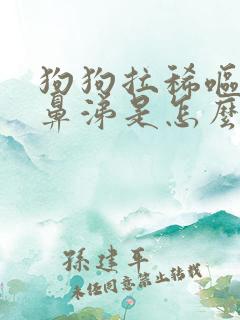 狗狗拉稀嘔
鼻涕是怎麼
孫建平
未經同意禁止轉載